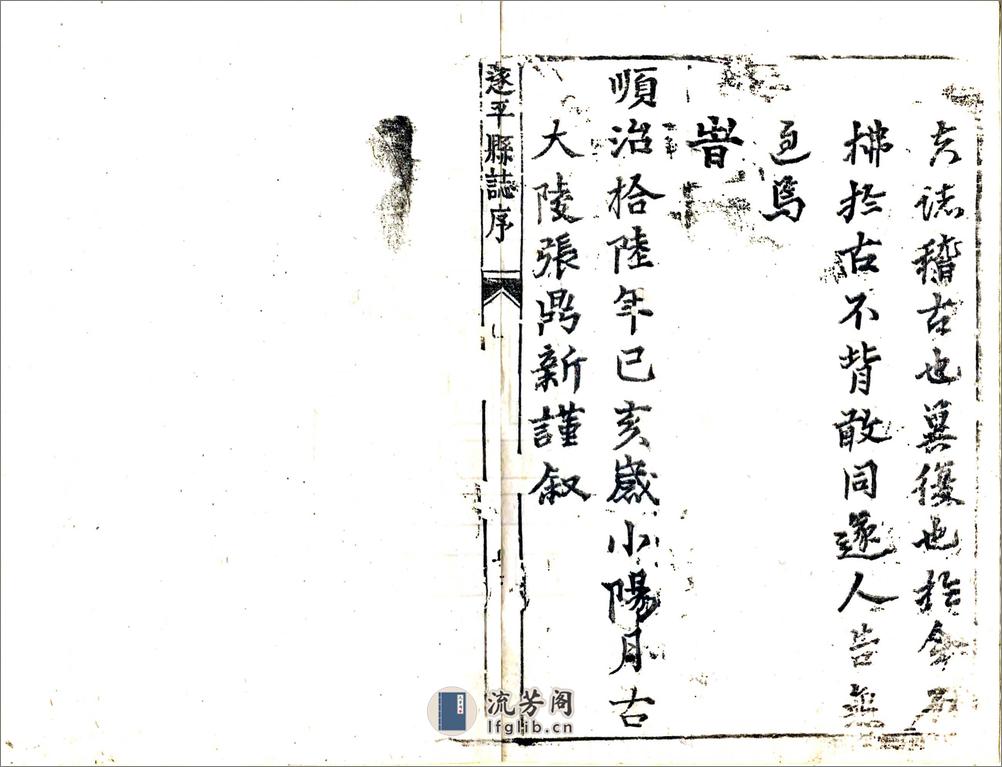 夫誌稽古也冀復也於今不
拂於古不背敢同遂人告無
焉
旹
順治拾陸年已亥歲小陽月古
大陵張鼎新謹叙
遂平縣誌序
流芳阁
lfglib.cn